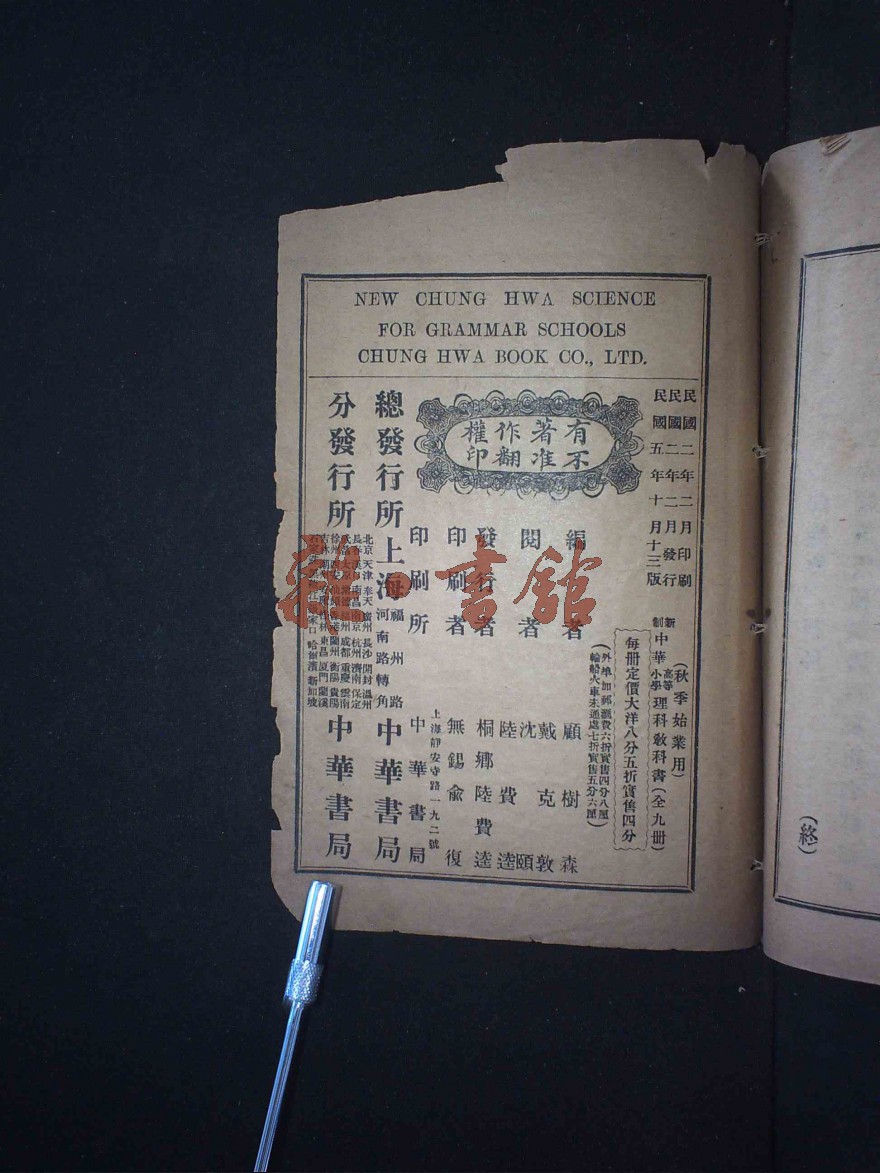 NEW CHUNG HWA SCIENCE
FOR GRAMMAR SCHOOLS
CHUNG HWA BOOK CO., LTD.
民國二年二月印刷
民國二年二月發行
民國五年十月十三版
新制中華高等小學理科教科書(全九冊)
(秋季始業用)
每冊定價大洋八分五折實售四分
外埠加郵匯費六折實售四分八厘
輪船火車未通處七折實售五分六厘
有著作權
不准翻印
編者 顧樹森
閱者 戴克敦
沈頤
陸費逵
發行者 桐鄉陸費逵
印刷者 無錫俞復
印刷所 上海靜安寺路一九二號
中華書局
總發行所 上海福州路河南路轉角 中華書局
分發行所
北京 天津 奉天 廣州 長沙 開封 溫州
長春 漢口 南昌 南京 杭州 濟南 保定
福州 成都 重慶 雲南
蘭州 衡陽 貴陽
東昌 廈門 蘭溪
哈爾濱 新加坡
中華書局
(終)
雜·書館